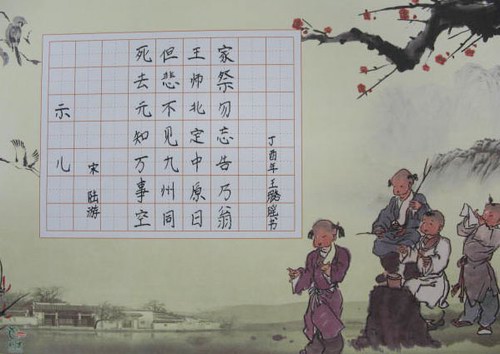 示儿
宋 陆游
死去元知万事空
但悲不见九州同
王师北定中原日
家祭勿忘告乃翁
丁酉年王瑶书